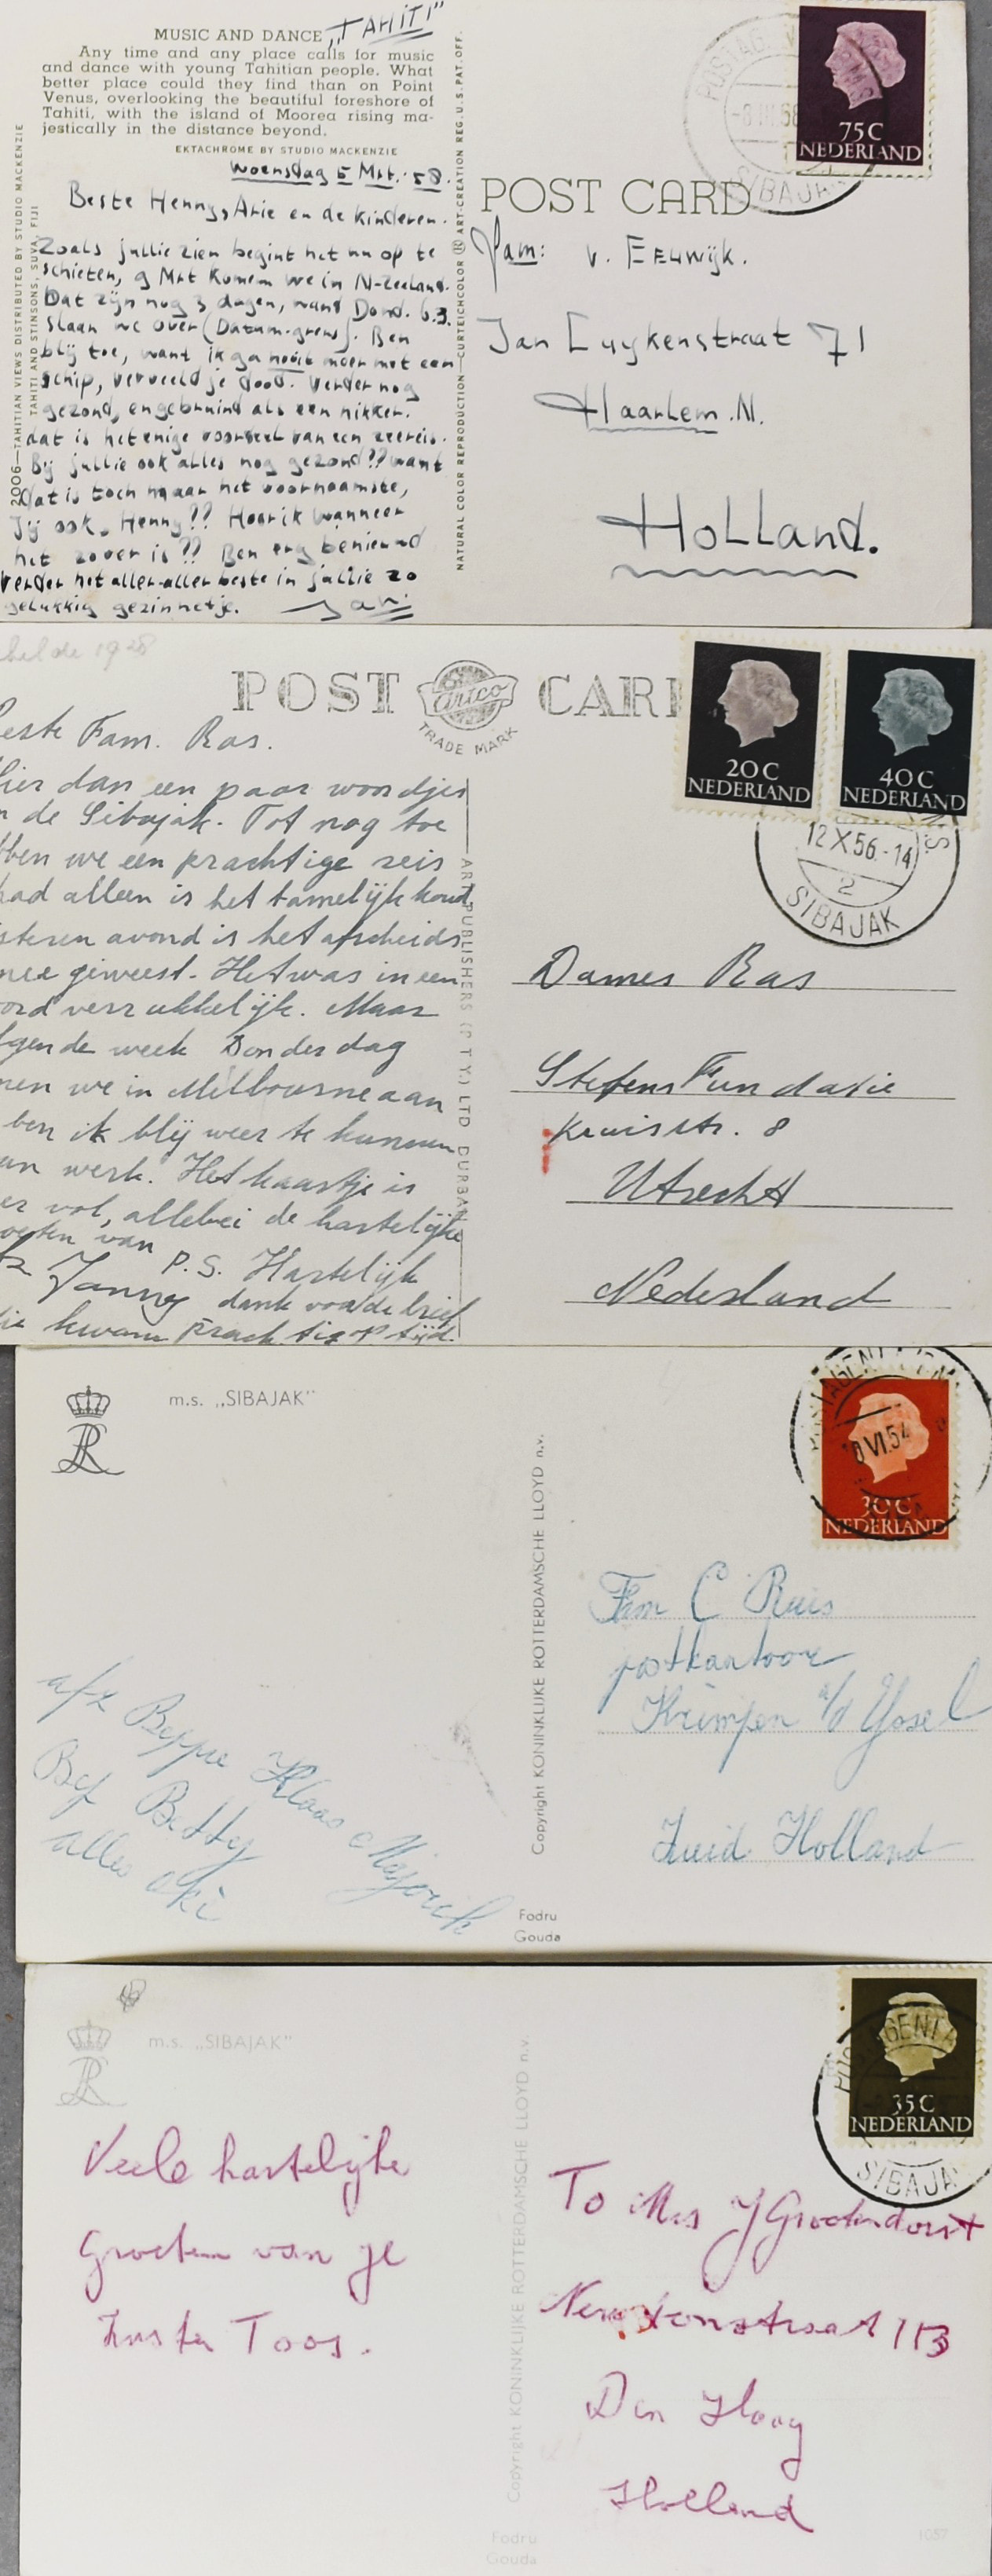 MUSIC AND DANCE „TAHITI”
Any time and any place calls for music
and dance with young Tahitian people. What
better place could they find than on Point
Venus, overlooking the beautiful foreshore of
Tahiti, with the island of Moorea rising ma-
jestically in the distance beyond.
EKTACHROME BY STUDIO MACKENZIE
2006—TAHITIAN VIEWS DISTRIBUTED BY STUDIO MACKENZIE
TAHITI AND STINSONS, SUVA, FIJI
Woensdag 5 Mrt. '58.
Beste Henny, Arie en de kinderen.
Zoals jullie zien begint het nu op te
schieten, 9 Mrt komen we in N-Zeeland.
Dat zijn nog 3 dagen, want Dond. 6.3.
slaan we over (Datum-grens). Ben
blij toe, want ik ga nooit meer met een
schip, verveeld je dood. Verder nog
gezond, en gebruind als een nikker.
dat is het enige voordeel van een zeereis.
Bij jullie ook alles nog gezond?? want
dat is toch maar het voornaamste,
Jij ook, Henny?? Hoor ik wanneer
het zover is?? Ben erg benieuwd
Verder het aller-aller beste in jullie zo
gelukkig gezinnetje. Jan.
NATURAL COLOR REPRODUCTION—CURTEICHCOLOR ® ART-CREATION REG. U.S. PAT. OFF.
POST CARD
75C
NEDERLAND
POSTAG
-8 III 58
SIBAJAK
Fam: v. Eeuwijk.
Jan Luykenstraat 71
Haarlem. N.
Holland.
1928
POST CAR
Artco
TRADE MARK
este Fam. Ras.
Hier dan een paar woordjes
n de Sibajak. Tot nog toe
bben we een prachtige reis
had alleen is het tamelijk koud,
steren avond is het afscheids
nee geweest. Het was in een
ord verrukkelijk. Maar
lgende week Donderdag
men we in Melbourne aan
ben ik blij weer te kunnen
an werk. Het kaartje is
er vol, allebei de hartelijke
oeten van
Janny
P.S. Hartelijk
dank voor de brief
die kwam prachtig op tijd.
ART PUBLISHERS (PTY) LTD DURBAN
20C
NEDERLAND
40C
NEDERLAND
12 X 56.-14
2
SIBAJAK
Dames Ras
Stefens Fundatie
Kruisstr. 8
Utrecht
Nederland
m.s. „SIBAJAK”
Copyright KONINKLIJKE ROTTERDAMSCHE LLOYD n.v.
30C
NEDERLAND
VI.54
Fam C Ruis
postkantoor
Krimpen a/d Yssel
Zuid Holland
afz Beppe Klaas Meyerink
Bep Betty
alles oké
Fodru
Gouda
m.s. „SIBAJAK”
Copyright KONINKLIJKE ROTTERDAMSCHE LLOYD n.v.
35C
NEDERLAND
SIBAJA
Veele hartelijke
Groeten van je
Zuster Toos.
To Mrs J Grootendorst
Newtonstraat 113
Den Haag
Holland
Fodru
Gouda
1057